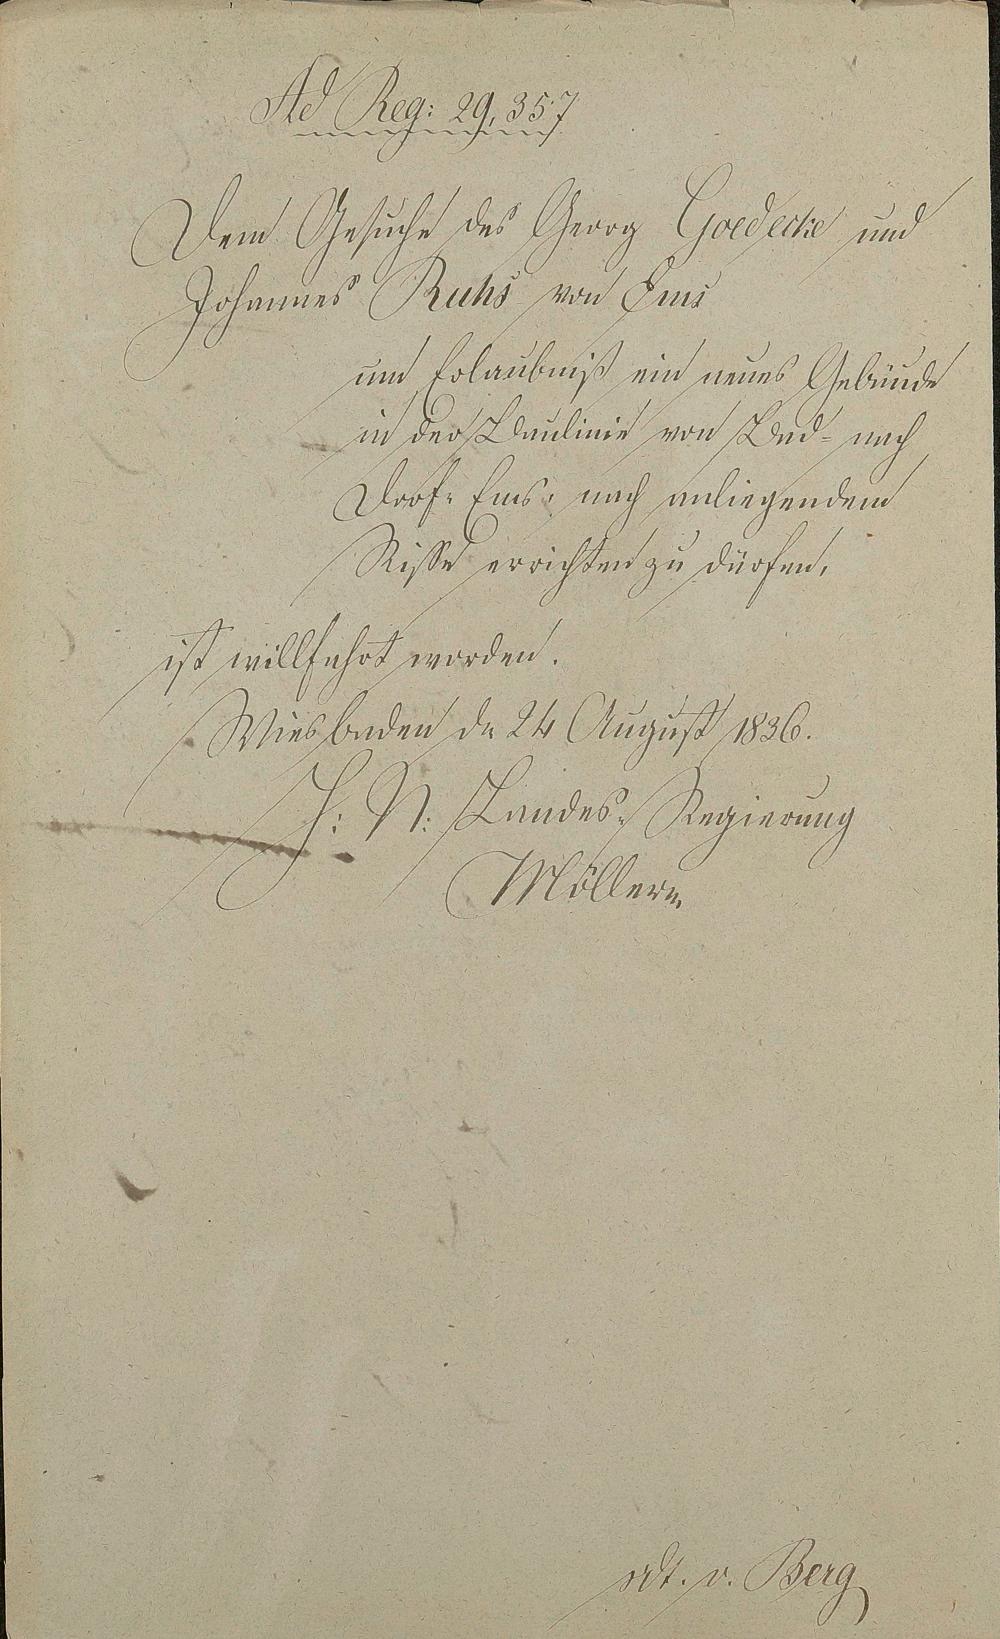 Ad Reg: 29,357
Dem Gesuche des Georg Goedecke und
Johannes Ruhs von Ems
um Erlaubniß ein neues Gebäude
in der Baulinie von Bad- nach
Dorf-Ems, nach anliegendem
Risse errichten zu dürfen,
ist willfahrt worden.
Wiesbaden dn 24 August 1836.
H: N: Landes-Regierung
Möller
vdt. v. Berg